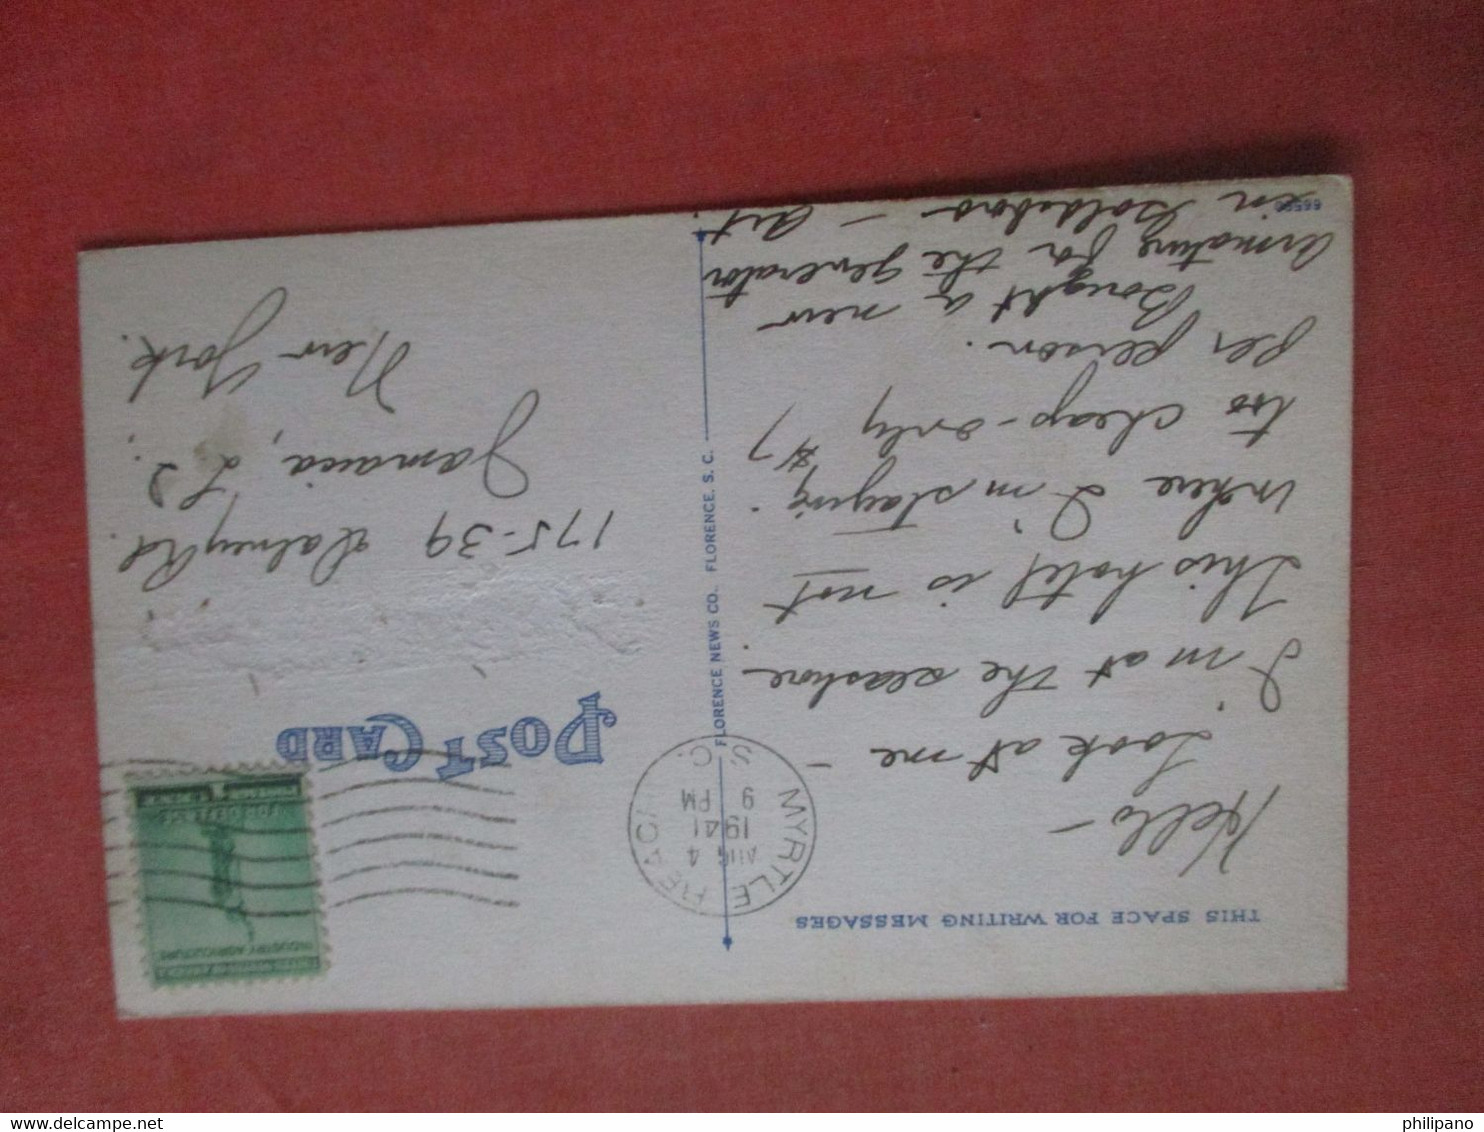 THIS SPACE FOR WRITING MESSAGES
Hello -
Look at me -
I'm at the seashore
This hotel is not
where I'm staying;
too cheap - only $7
per person.
Bought a new
armature for the generator
in Goldsboro - Art.
66506
FLORENCE NEWS CO. FLORENCE, S. C.
MYRTLE BEACH
AUG 4
1941
9 PM
S. C.
POST CARD
INDUSTRY AGRICULTURE
FOR DEFENSE
175-39 Rd.
Jamaica, L I
New York.
philipano